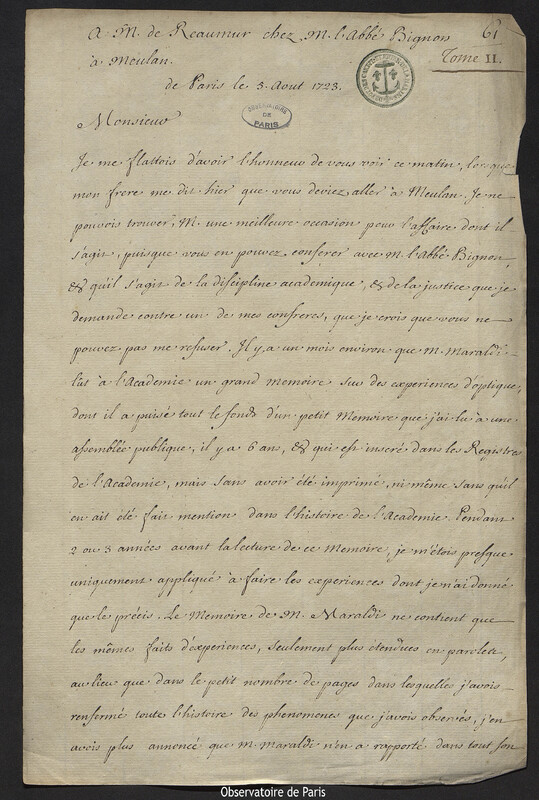 A M. de Reaumur chez M. l'Abbé Bignon
61
à Meulan.
Tome II.
de Paris le 3. Aout 1723.
OBSERVATOIRE
DE
PARIS
Monsieur
Je me flattois d'avoir l'honneur de vous voir ce matin, lorsque
mon frere me dit hier que vous deviez aller à Meulan. Je ne
pouvois trouver, M. une meilleure occasion pour l'affaire dont il
s'agit, puisque vous en pouvez conferer avec M. l'Abbé Bignon,
& qu'il s'agit de la discipline academique, & de la justice que je
demande contre un de mes confreres, que je crois que vous ne
pouvez pas me refuser. Il y a un mois environ que M. Maraldi
lût à l'Academie un grand memoire sur des experiences d'optique,
dont il a puisé tout le fonds d'un petit Memoire que j'ai lu à une
assemblée publique, il y a 6 ans, & qui est inseré dans les Registres
de l'Academie, mais sans avoir été imprimé, ni même sans qu'il
en ait été fait mention dans l'histoire de l'Academie. Pendant
2 ou 3 années avant la lecture de ce Memoire, je m'étois presque
uniquement appliqué à faire les experiences dont je n'ai donné
que le précis. Le Memoire de M. Maraldi ne contient que
les mêmes faits d'experiences, seulement plus étendues en paroles,
au lieu que dans le petit nombre de pages dans lesquelles j'avois
renfermé toute l'histoire des phenomenes que j'avois observés, j'en
avois plus annoncé que M. Maraldi n'en a rapporté dans tout son
Observatoire de Paris